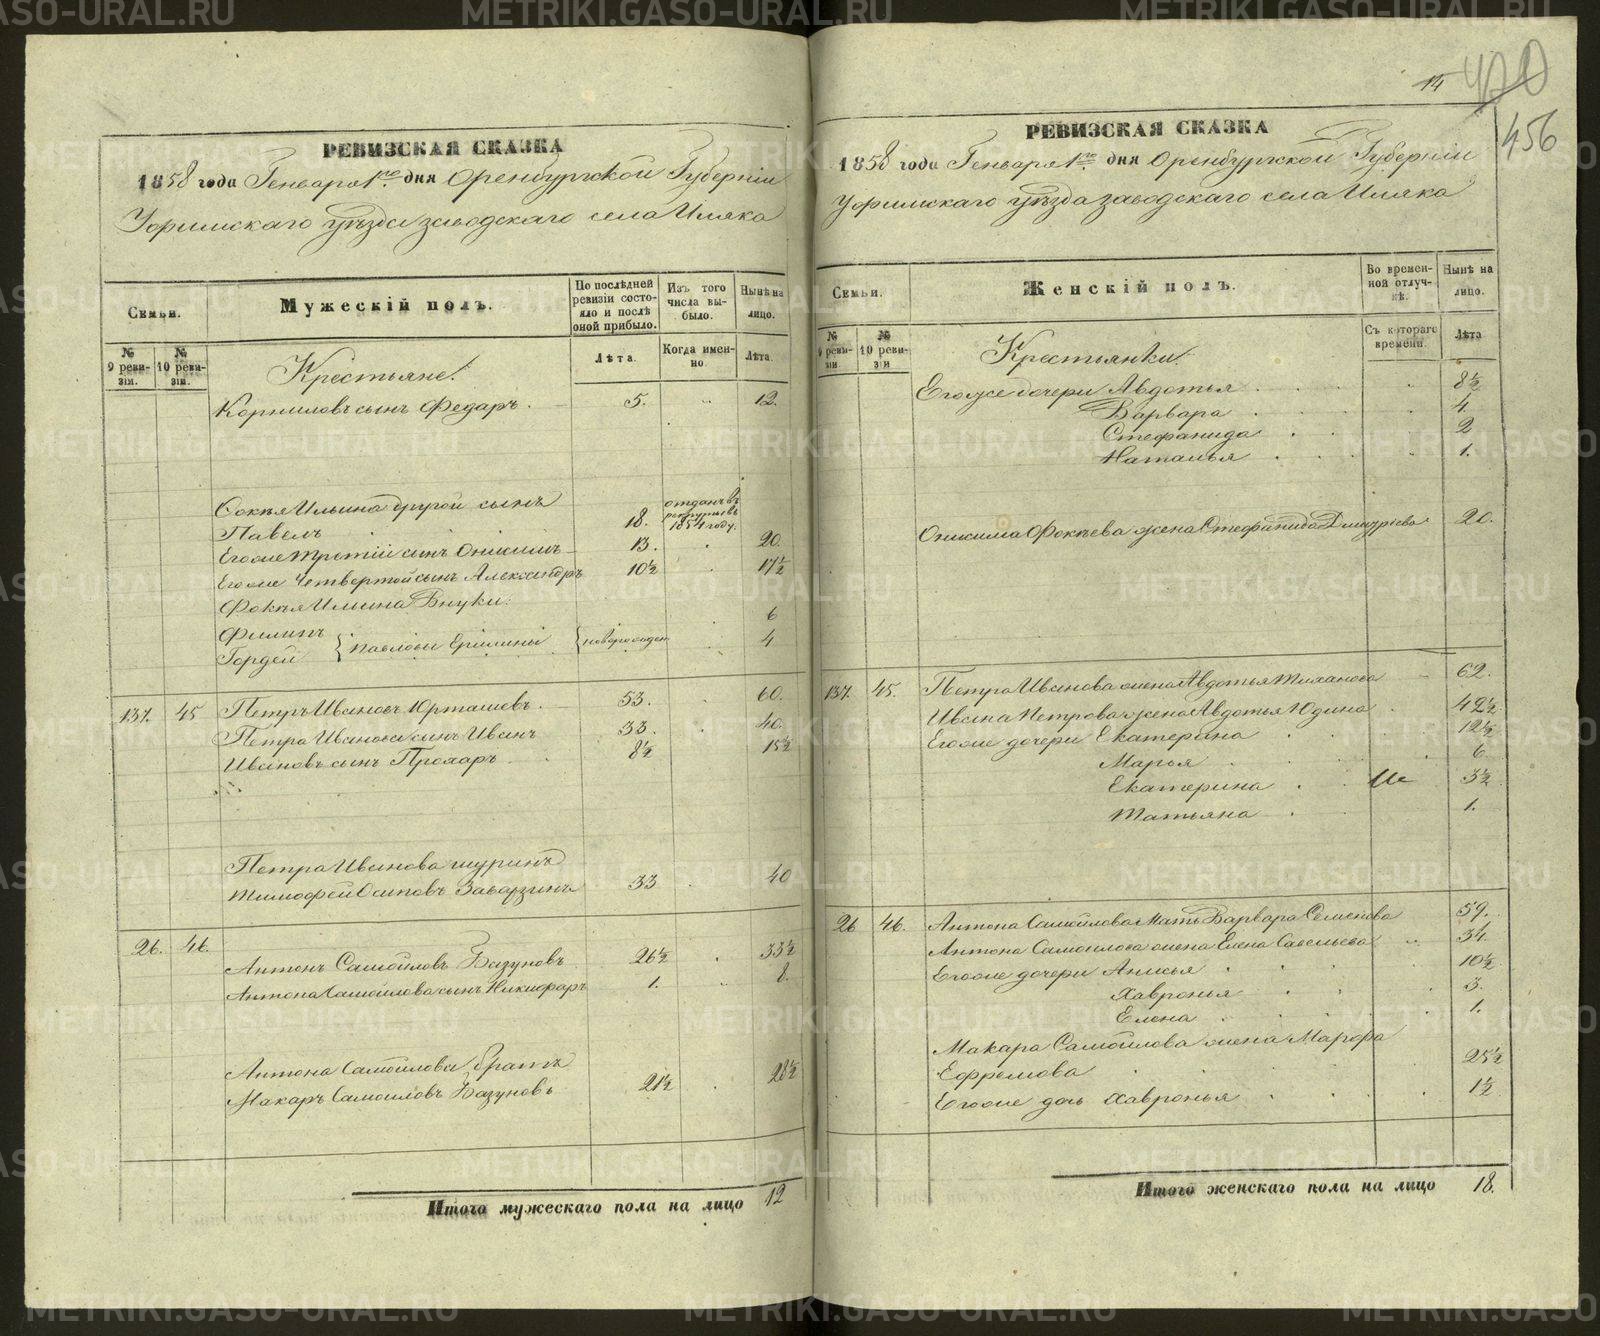 РЕВИЗСКАЯ СКАЗКА
1858 года Генваря 1го дня Оренбургской Губерніи
Уфимскаго уѣзда заводскаго села Илека
Семьи.
Мужескій полъ.
По послѣдней ревизіи состояло и послѣ оной прибыло.
Изъ того числа выбыло.
Нынѣ на лицо.
№ 9 ревизіи.
№ 10 ревизіи.
Лѣта.
Когда именно
Лѣта.
Крестьяне.
Корниловъ сынъ Федаръ. 5. " 12.
Фокѣя Ильина другой сынъ
Павелъ 18. отданъ въ рекруты въ 1854 году.
Егоже третій сынъ Онисимъ 13. 20.
Егоже Четвертой сынъ Александръ 10½ 17½
Фокѣя Ильина Внуки:
Филипъ 6
Гордей Павловы новорожден 4
137. 45 Петръ Ивановъ Юрташевъ. 53. 60.
Петра Иванова сынъ Иванъ 33. 40.
Ивановъ сынъ Прохаръ 8½ 15½
Петра Иванова шуринъ
Тимофей Осиповъ Заварзинъ 33 40
26. 46.
Антонъ Самойловъ Базуновъ 26½ 33½
Антона Самойлова сынъ Никифаръ 1. 8.
Антона Самойлова братъ
Макаръ Самойловъ Базуновъ 21½ 28½
Итого мужескаго пола на лицо 12
14
470
456
РЕВИЗСКАЯ СКАЗКА
1858 года Генваря 1го дня Оренбургской Губерніи
Уфимскаго уѣзда заводскаго села Илека
Семьи.
Женскій полъ.
Во временной отлучкѣ.
Нынѣ на лицо.
№ 9 ревизіи
№ 10 ревизіи
Съ котораго времени.
Лѣта
Крестьянки.
Егоже дочери Авдотья 8½
Варвара 4.
Стефанида 2
Наталья 1.
Онисима Фокѣева жена Стефанида Дмитріева 20.
137. 45. Петра Иванова жена Авдотья 62.
Ивана Петрова жена Авдотья Юдина 42½
Егоже дочери Екатерина 12½
Марья 6.
Екатерина 3½
Татьяна 1.
26 46. Антона Самойлова Мать Варвара Семенова 59.
Антона Самойлова жена Елена Савельева 34.
Егоже дочери Анисья 10½
Хавронья 3.
Елена 1.
Макара Самойлова жена Марфа
Ефремова 25½
Егоже дочь Хавронья 1½
Итого женскаго пола на лицо 18.
METRIKI.GASO-URAL.RU